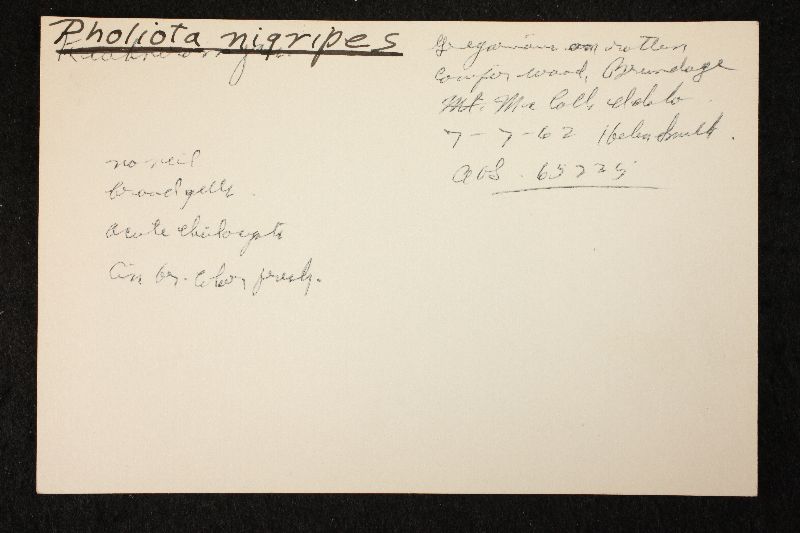 Pholiota nigripes
Kuehneromyces
Gregarious on rotten
conifer wood, Brundage
Mt. McCall, Idaho
7-7-62 Helen Smith.
AHS. 65225
no veil
broad gills.
acute cheilocysts
Cin br. color fresh.